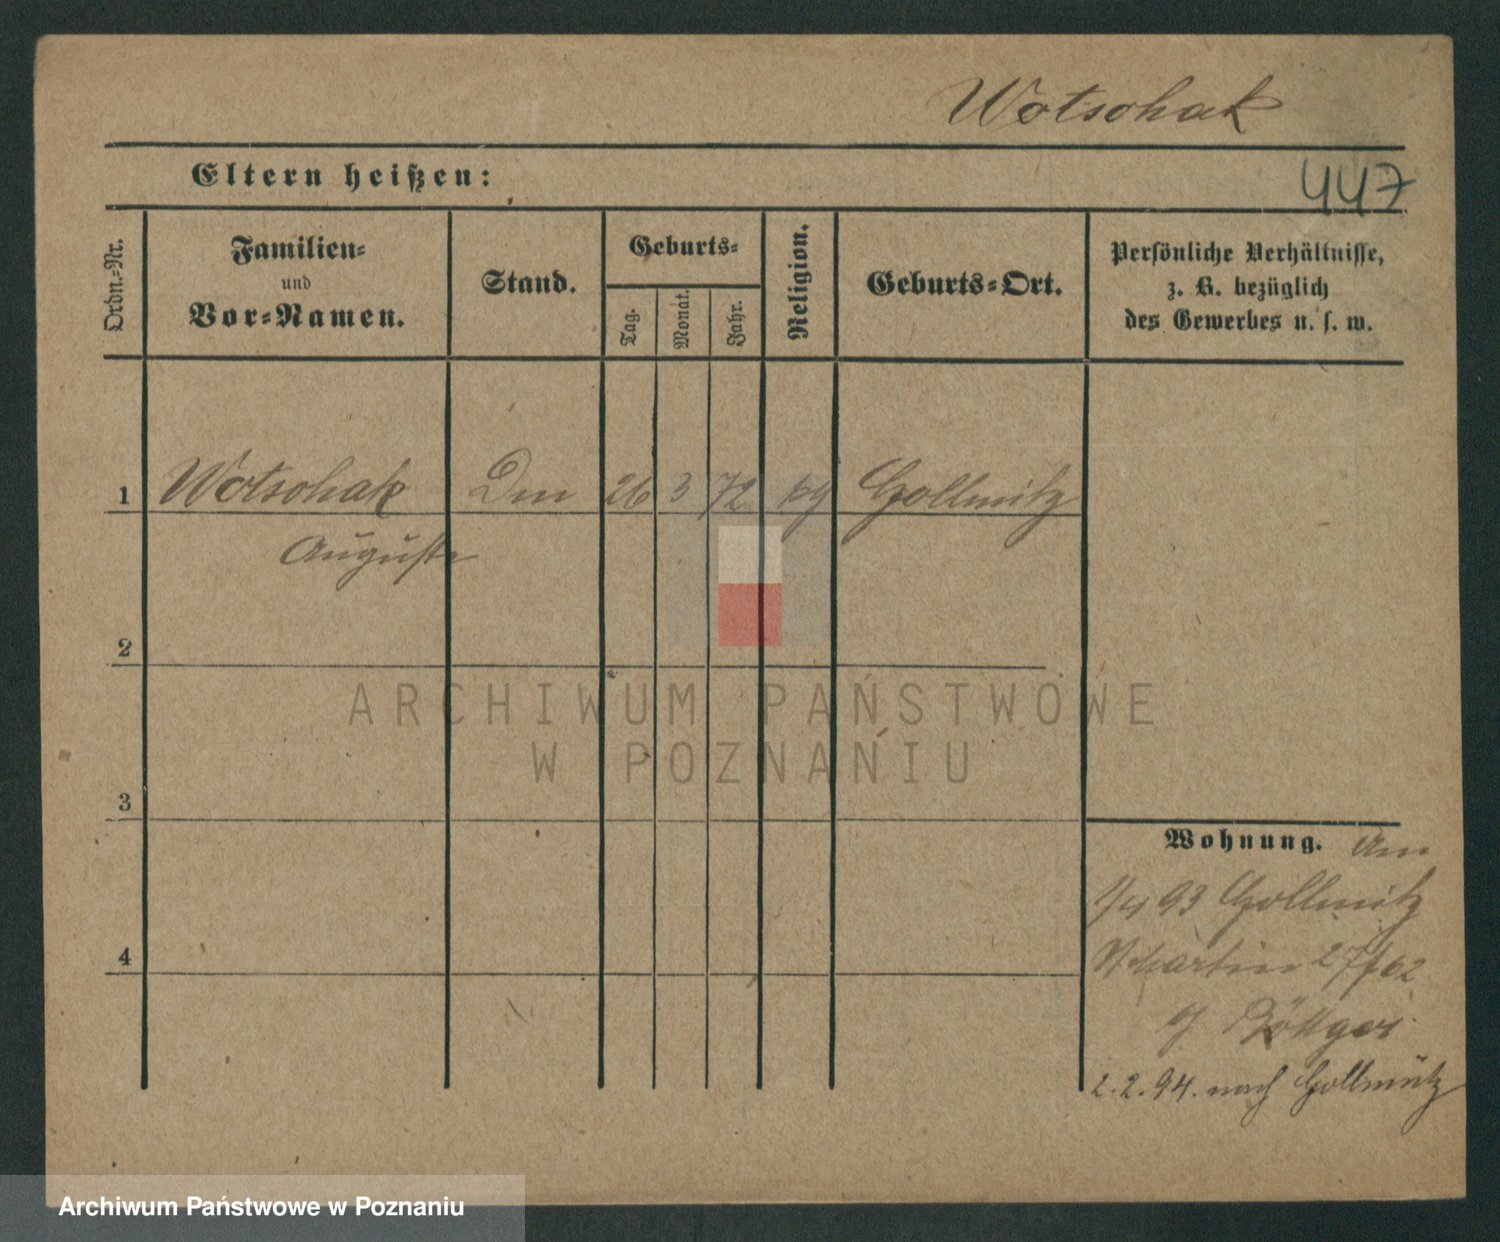 Wotschak
Eltern heißen:
447
Ordn.=Nr.
Familien=
und
Vor=Namen.
Stand.
Geburts=
Tag.
Monat.
Jahr.
Religion.
Geburts=Ort.
Persönliche Verhältnisse,
z. B. bezüglich
des Gewerbes u. s. w.
1 Wotschak 26 3 72 Gollmitz
Auguste
2
3
4
Wohnung. Am
1/4 93 Gollmitz
St Martin 27
Böttger
2.2.94. nach Gollmütz
ARCHIWUM PAŃSTWOWE
W POZNANIU
Archiwum Państwowe w Poznaniu